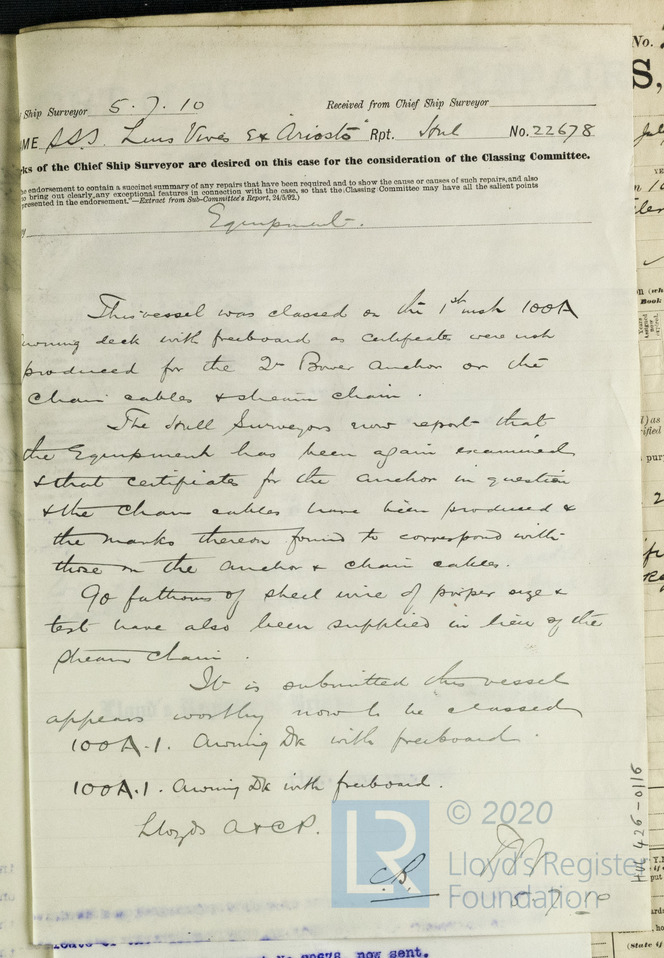 Ship Surveyor 5.7.10 Received from Chief Ship Surveyor
ME SSS. Luis Vives Ex "Ariosto" Rpt. Hul No. 22678
ks of the Chief Ship Surveyor are desired on this case for the consideration of the Classing Committee.
e endorsement to contain a succinct summary of any repairs that have been required and to show the cause or causes of such repairs, and also
o bring out clearly, any exceptional features in connection with the case, so that the Classing Committee may have all the salient points
presented in the endorsement."—Extract from Sub-Committee's Report, 24/5/92.)
Equipment.
This vessel was classed on the 1st inst 100A
awning deck with freeboard as certificates were not
produced for the 2nd Bower anchor or the
Chain cables & stream chain.
The Hull Surveyors now report that
the Equipment has been again examined
& that certificates for the anchor in question
& the chain cables have been produced &
the marks thereon found to correspond with
those on the anchor & chain cables.
90 fathoms of steel wire of proper size &
test have also been supplied in lieu of the
stream chain.
It is submitted this vessel
appears worthy now to be classed
100A.1. Awning Dk with freeboard.
100A.1. Awning Dk with freeboard.
Lloyds A & C P.
LR
© 2020
Lloyd's Register
Foundation
5.7.10
HUL 426-0116
No.
S,
now sent.